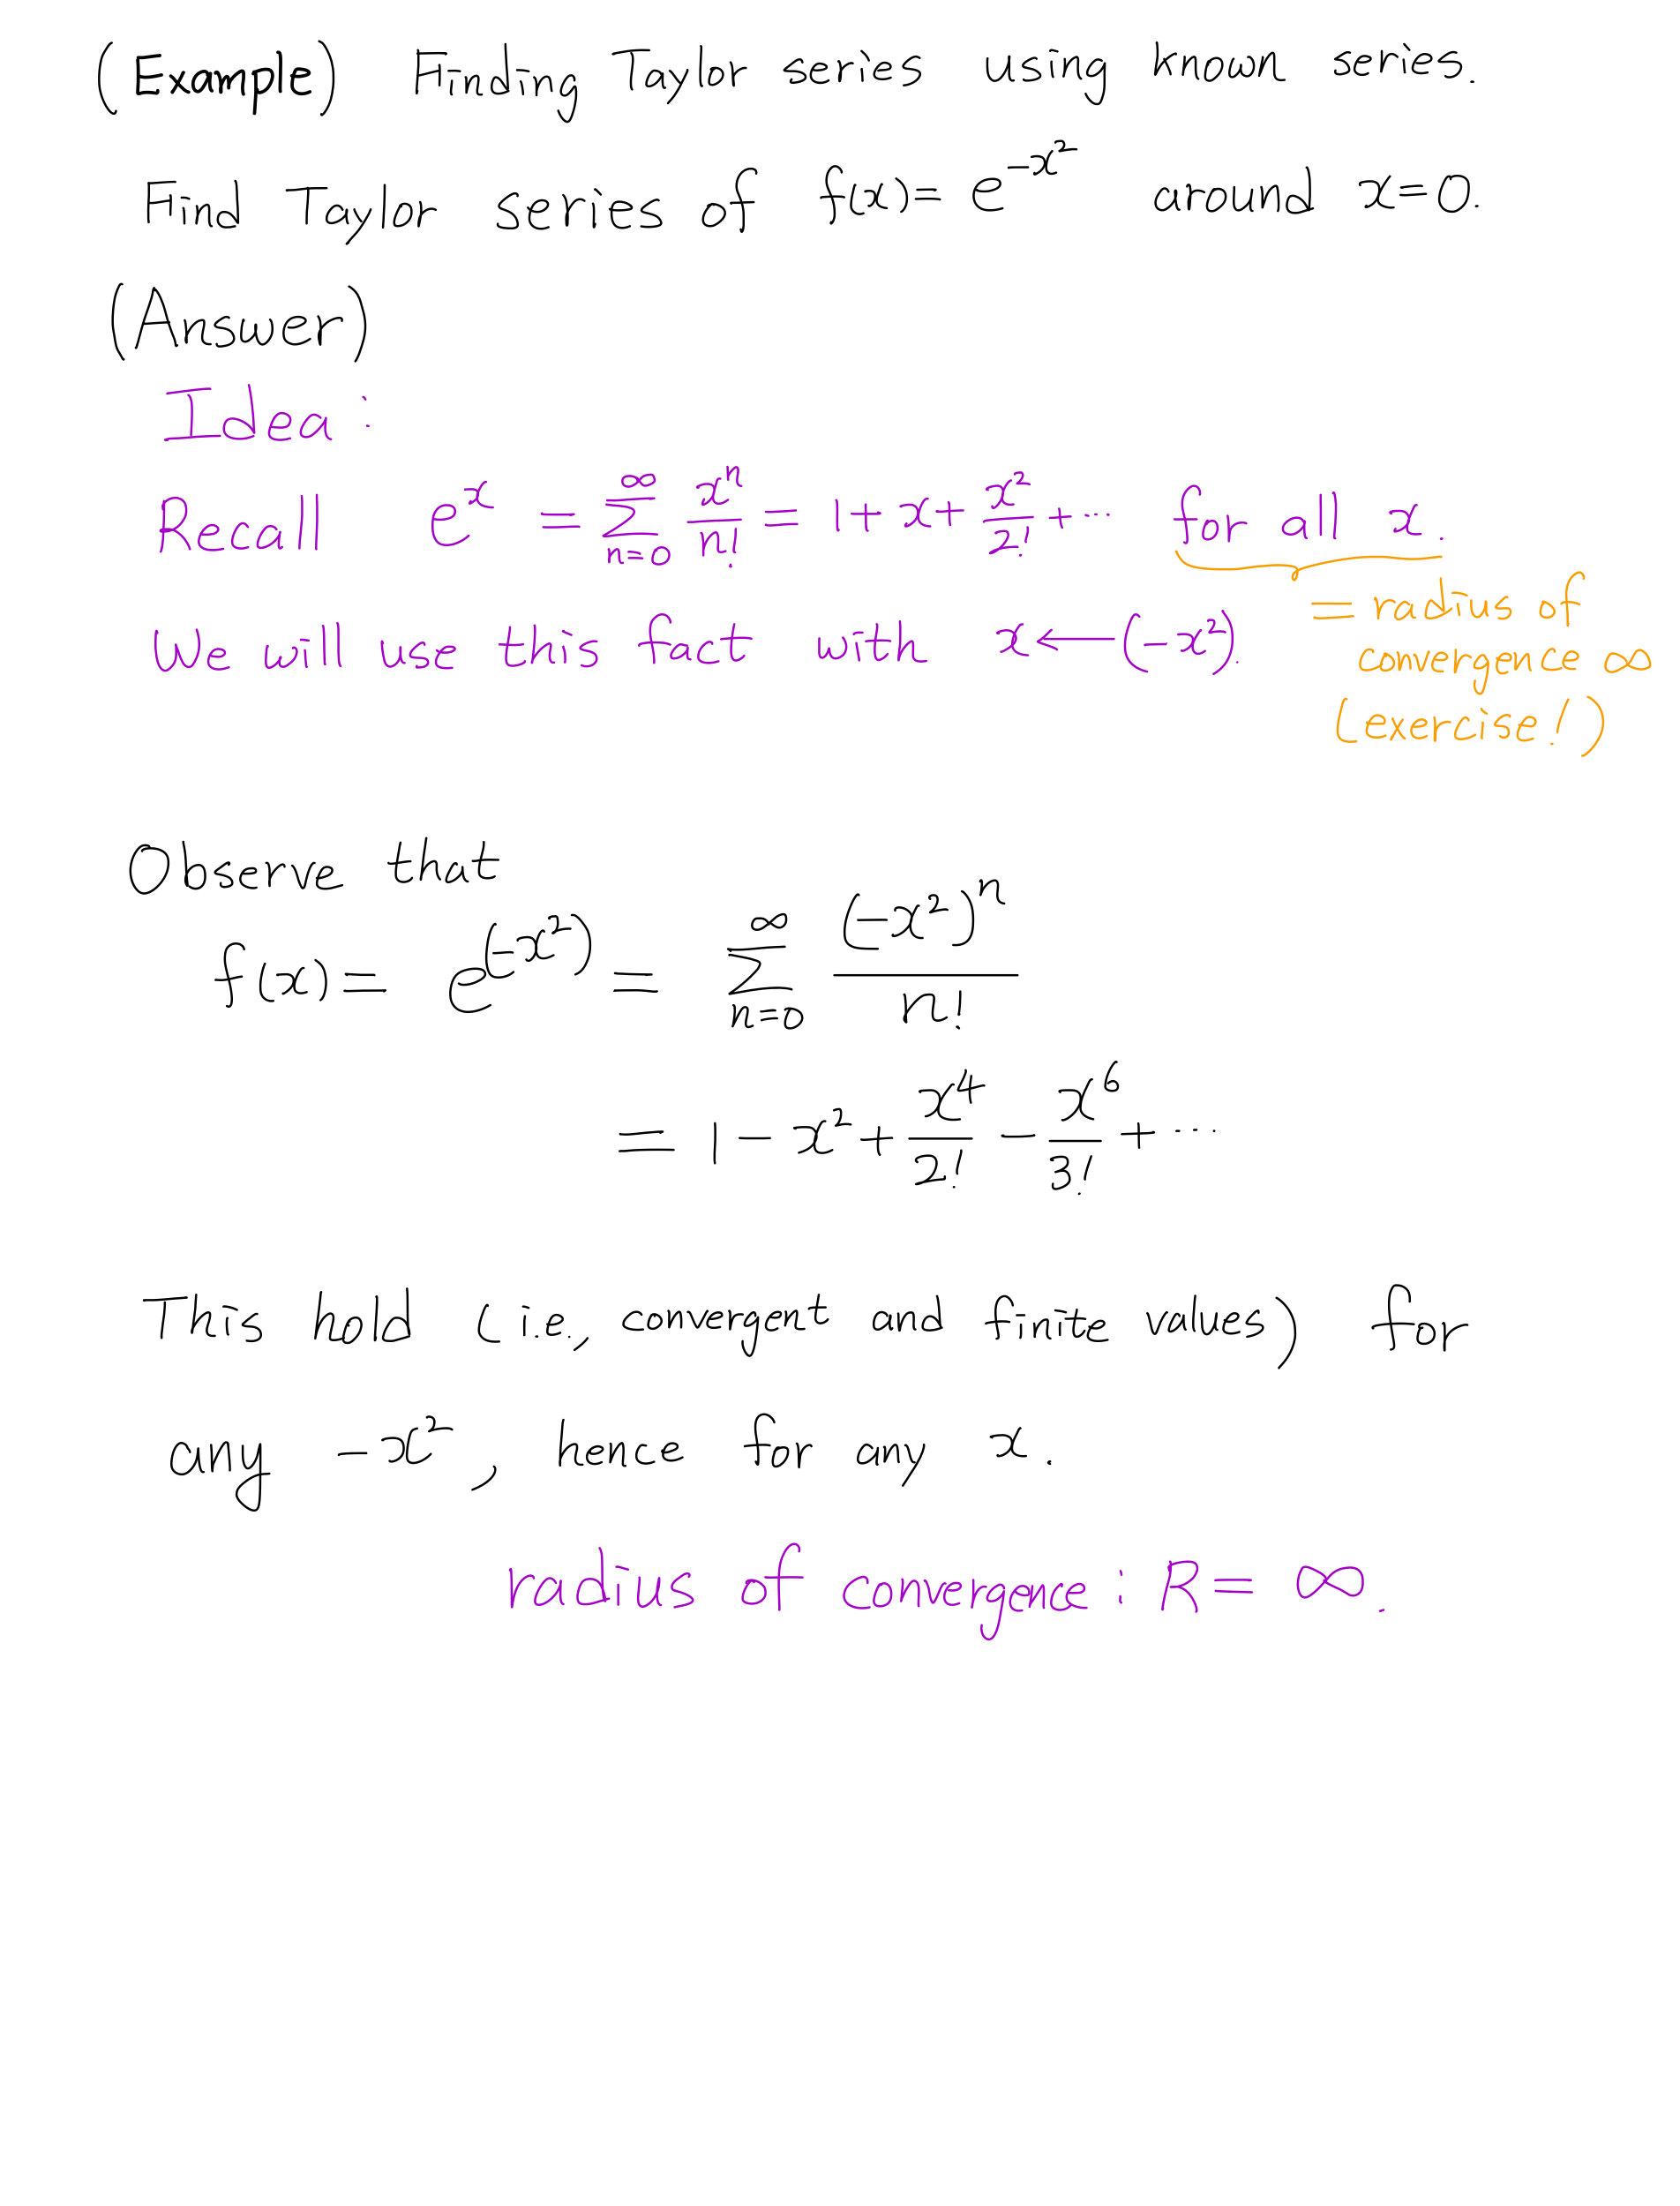 (Example) Finding Taylor series using known series.
Find Taylor series of f(x) = e^{-x^2} around x=0.
(Answer)
Idea :
Recall e^x = \sum_{n=0}^{∞} \frac{x^n}{n!} = 1+x+\frac{x^2}{2!}+⋯ for all x.
= radius of
convergence ∞
(exercise!)
We will use this fact with x ← (-x^2).
Observe that
f(x) = e^{(-x^2)} = \sum_{n=0}^{∞} \frac{(-x^2)^n}{n!}
= 1 - x^2 + \frac{x^4}{2!} - \frac{x^6}{3!} + ⋯
This hold (i.e., convergent and finite values) for
any -x^2, hence for any x.
radius of convergence : R = ∞.